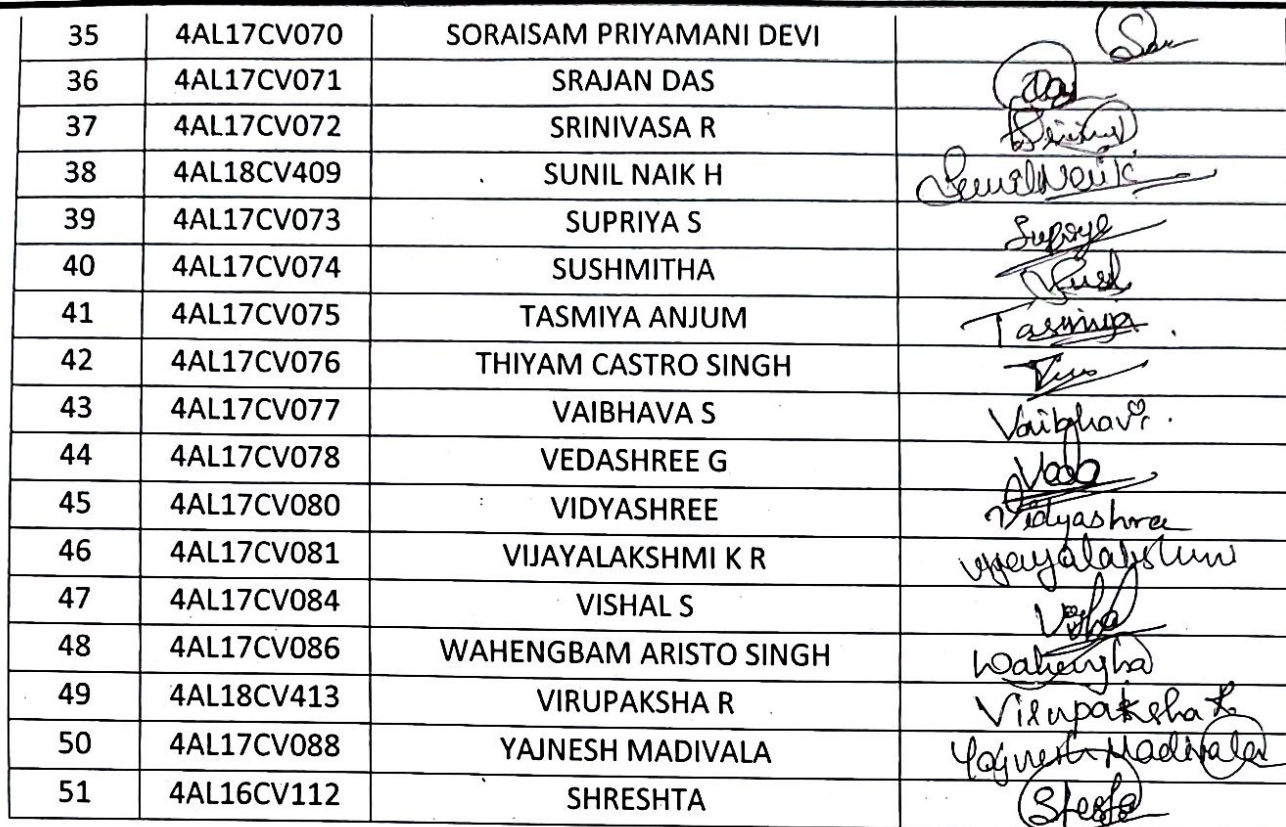 35 4AL17CV070 SORAISAM PRIYAMANI DEVI
36 4AL17CV071 SRAJAN DAS Das
37 4AL17CV072 SRINIVASA R
38 4AL18CV409 SUNIL NAIK H Sunil Naik
39 4AL17CV073 SUPRIYA S Supriya
40 4AL17CV074 SUSHMITHA
41 4AL17CV075 TASMIYA ANJUM Tasmiya
42 4AL17CV076 THIYAM CASTRO SINGH
43 4AL17CV077 VAIBHAVA S Vaibhavi
44 4AL17CV078 VEDASHREE G Veda
45 4AL17CV080 VIDYASHREE Vidyashree
46 4AL17CV081 VIJAYALAKSHMI K R Vijayalakshmi
47 4AL17CV084 VISHAL S Visha
48 4AL17CV086 WAHENGBAM ARISTO SINGH Wahengba
49 4AL18CV413 VIRUPAKSHA R Virupaksha R
50 4AL17CV088 YAJNESH MADIVALA Yajnesh Madivala
51 4AL16CV112 SHRESHTA